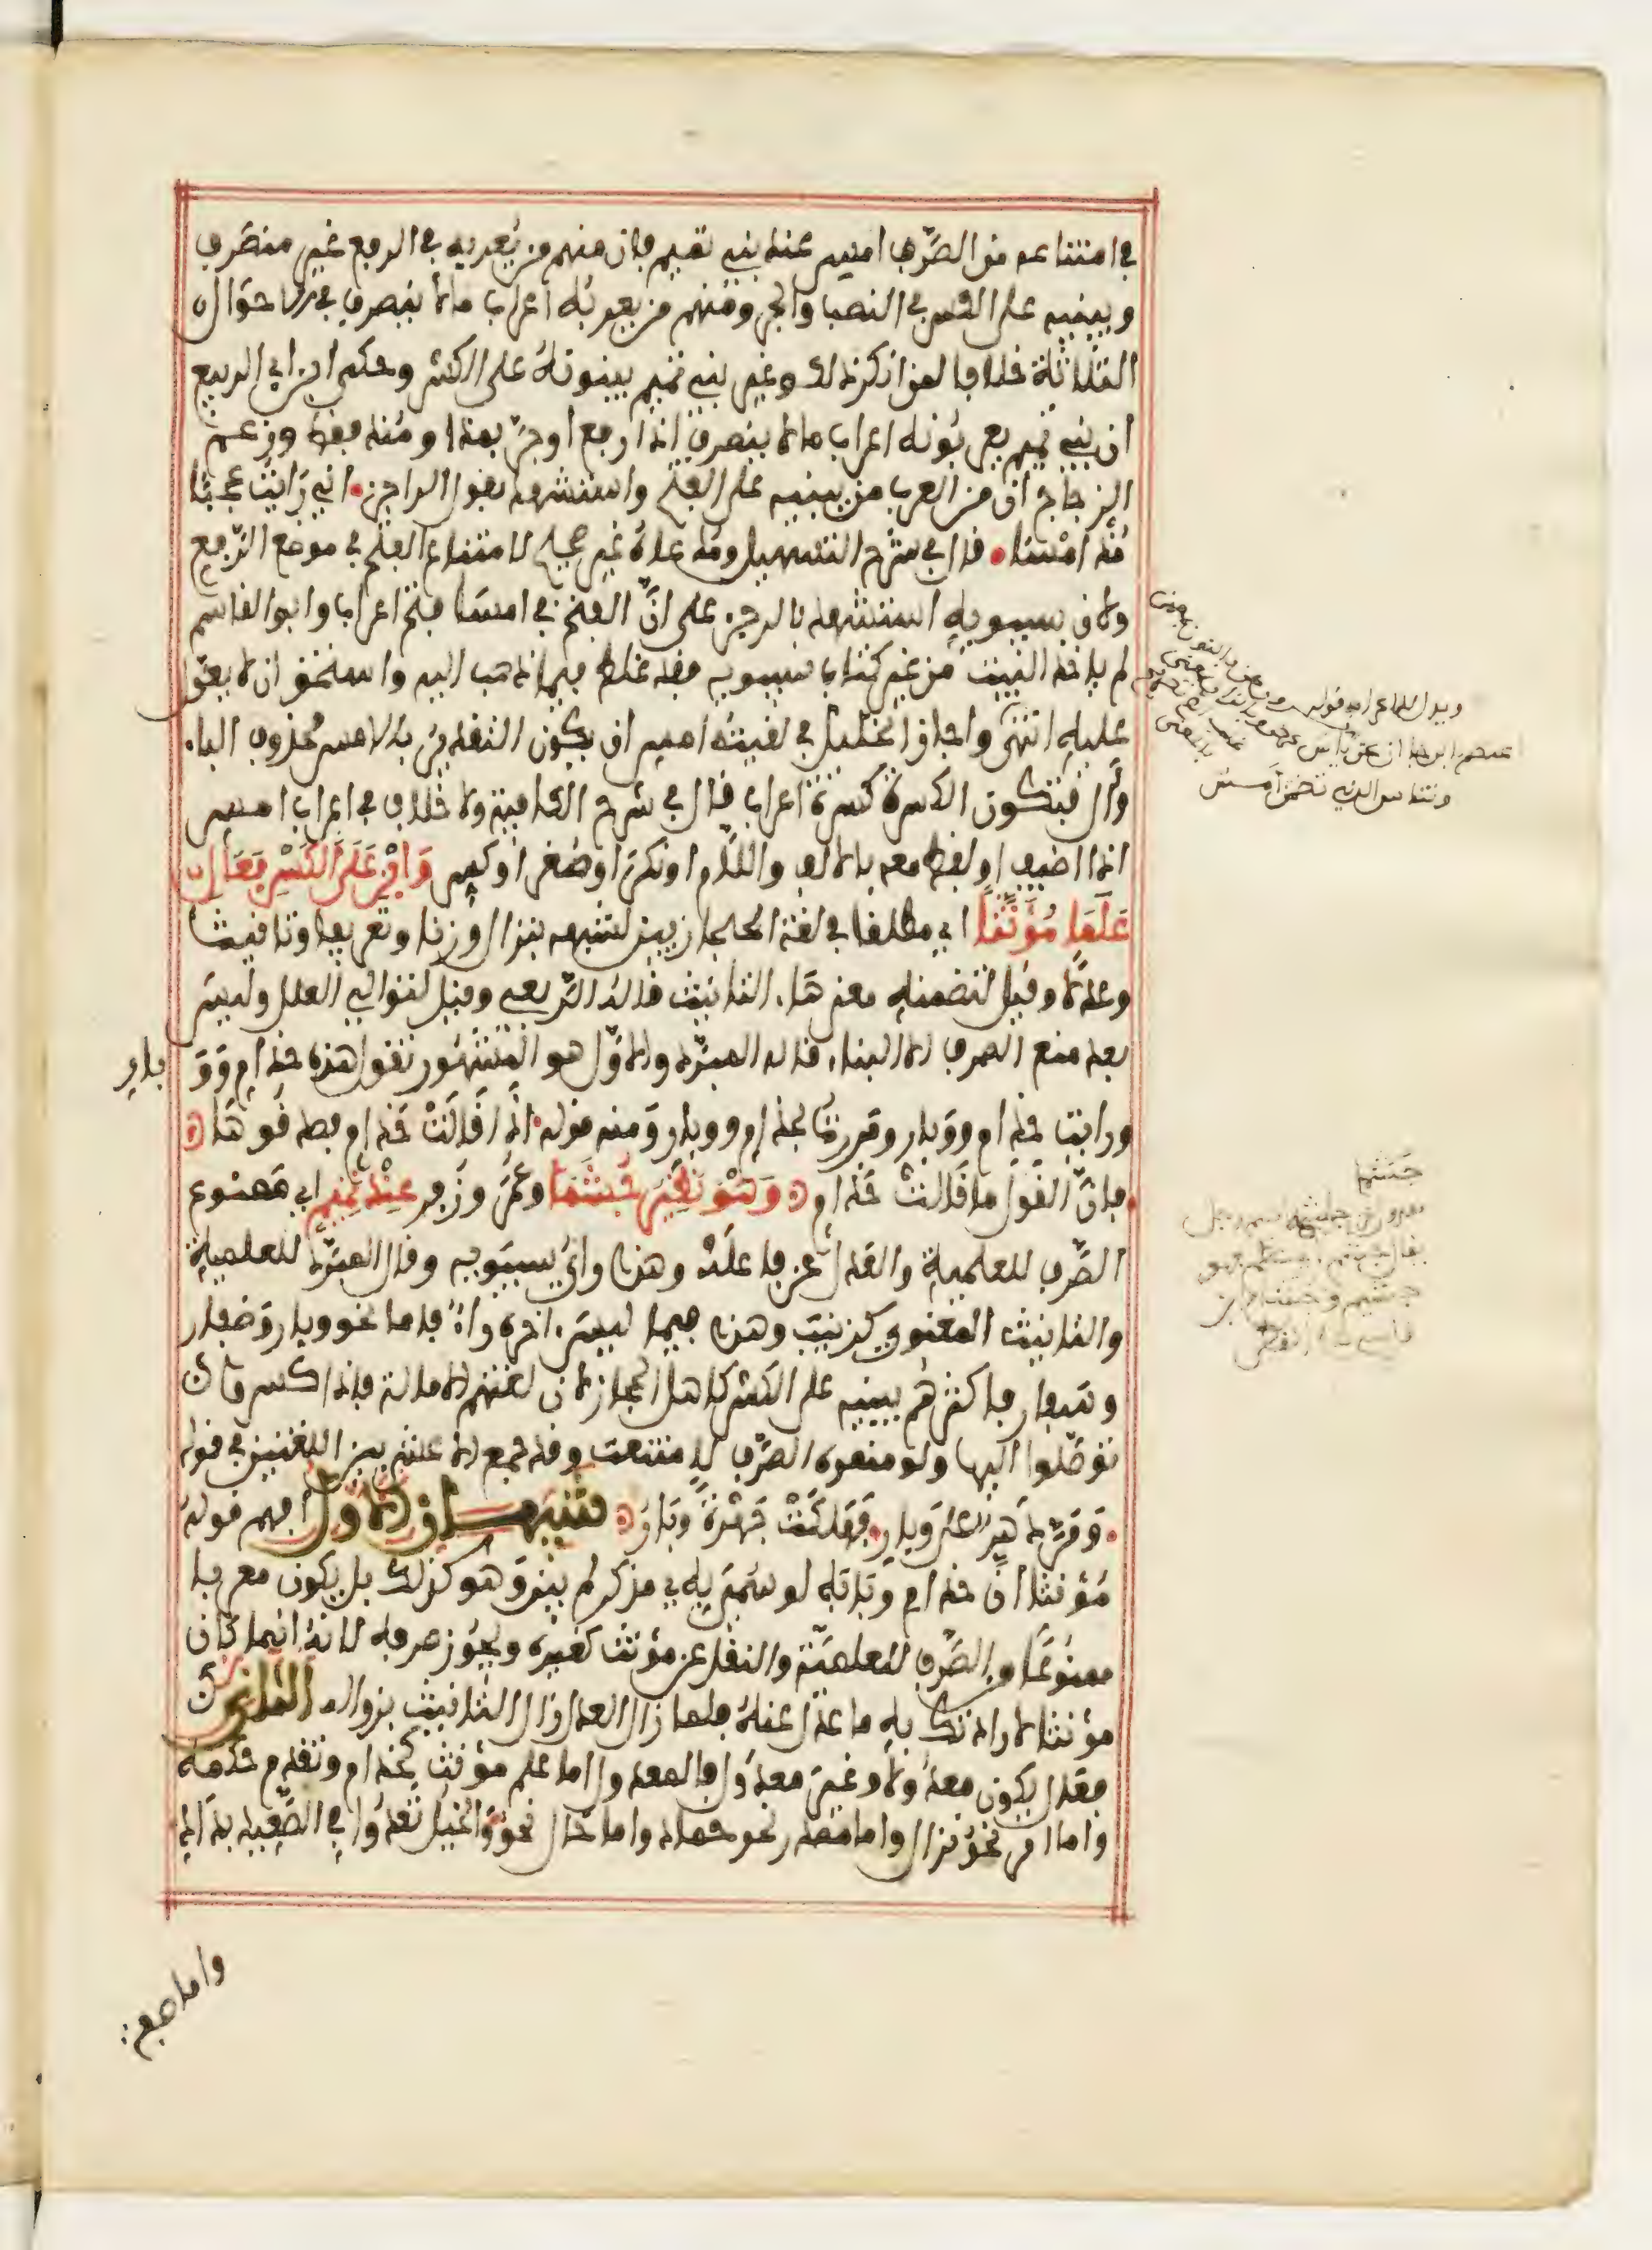 في امتناعه من الصرف امس عند بني تميم فان منهم من يعربه في الرفع غير منصرف
ويبنيه على الكسر في النصب والجر ومنهم من يعربه اعراب ما لا ينصرف في الاحوال
الثلاثة خلافا لمن انكر ذلك وغير بني تميم يبنونه على الكسر وحكى ابن ابي الربيع
ان بني تميم يعربونه اعراب ما لا ينصرف اذا رفع او جر بمذ او منذ فقط وزعم
الزجاج ان من العرب من يبنيه على الفتح واستشهد بقول الراجز اني رايت عجبا
مذ امسا قال في شرح التسهيل ومدعاه غير صحيح لامتناع الفتح في موضع الرفع
ولان سيبويه استشهد بالرجز على ان الفتح في امسا فتح اعراب وابو القاسم
لم ياخذ البيت من غير كتاب سيبويه فقد غلط فيما ذهب اليه واستحق ان لا يعول
عليه انتهى واجاز الخليل في لقيته امس ان يكون التقدير بالامس فحذف الباء
وال فتكون الكسرة كسرة اعراب قال في شرح الكافية ولا خلاف في اعراب امس
اذا اضيف او لفظ معه بالالف واللام او نكر او صغر او كسر وابن على الكسر فعال
علما مؤنثا اي مطلقا في لغة الحجازيين لشبهه بنزال وزنا وتعريفا وتانيثا
وعدلا وقيل لتضمنه معنى هاء التانيث قاله الربعي وقيل لتوالي العلل وليس
بعد منع الصرف الا البناء قاله المبرد والاول هو المشهور تقول هذه حذام ووبار
ورايت حذام ووبار ومررت بحذام ووبار ومنه قوله اذا قالت حذام فصدقوها
فان القول ما قالت حذام وهو نظير جشما وعمر وزفر عند تميم اي ممنوع
الصرف للعلمية والعدل عن فاعلة وهذا راي سيبويه وقال المبرد للعلمية
والتانيث المعنوي كزينب وهذا فيما ليس اخره راء فاما نحو وبار وظفار
وسفار فاكثرهم يبنيه على الكسر كاهل الحجاز لان لغتهم الامالة فاذا كسروا
توصلوا اليها ولو منعوه الصرف لامتنعت وقد جمع الاعشى بين اللغتين في قوله
ومر دهر على وبار فهلكت جهرة وبار تنبيهان الاول افهم قوله
مؤنثا ان حذام وبابه لو سمي به مذكر لم يبن وهو كذلك بل يكون معربا
ممنوعا من الصرف للعلمية والنقل عن مؤنث كغيره ويجوز صرفه لانه انما كان
مؤنثا لارادتك به ما عدل عنه فلما زال العدل زال التانيث بزواله الثاني
فعال يكون معدولا وغير معدول فالمعدول اما علم مؤنث كحذام وتقدم حكمه
واما امر نحو نزال واما مصدر نحو حماد واما حال نحو والخيل تعدوا في الصعيد بداد
واما صفة